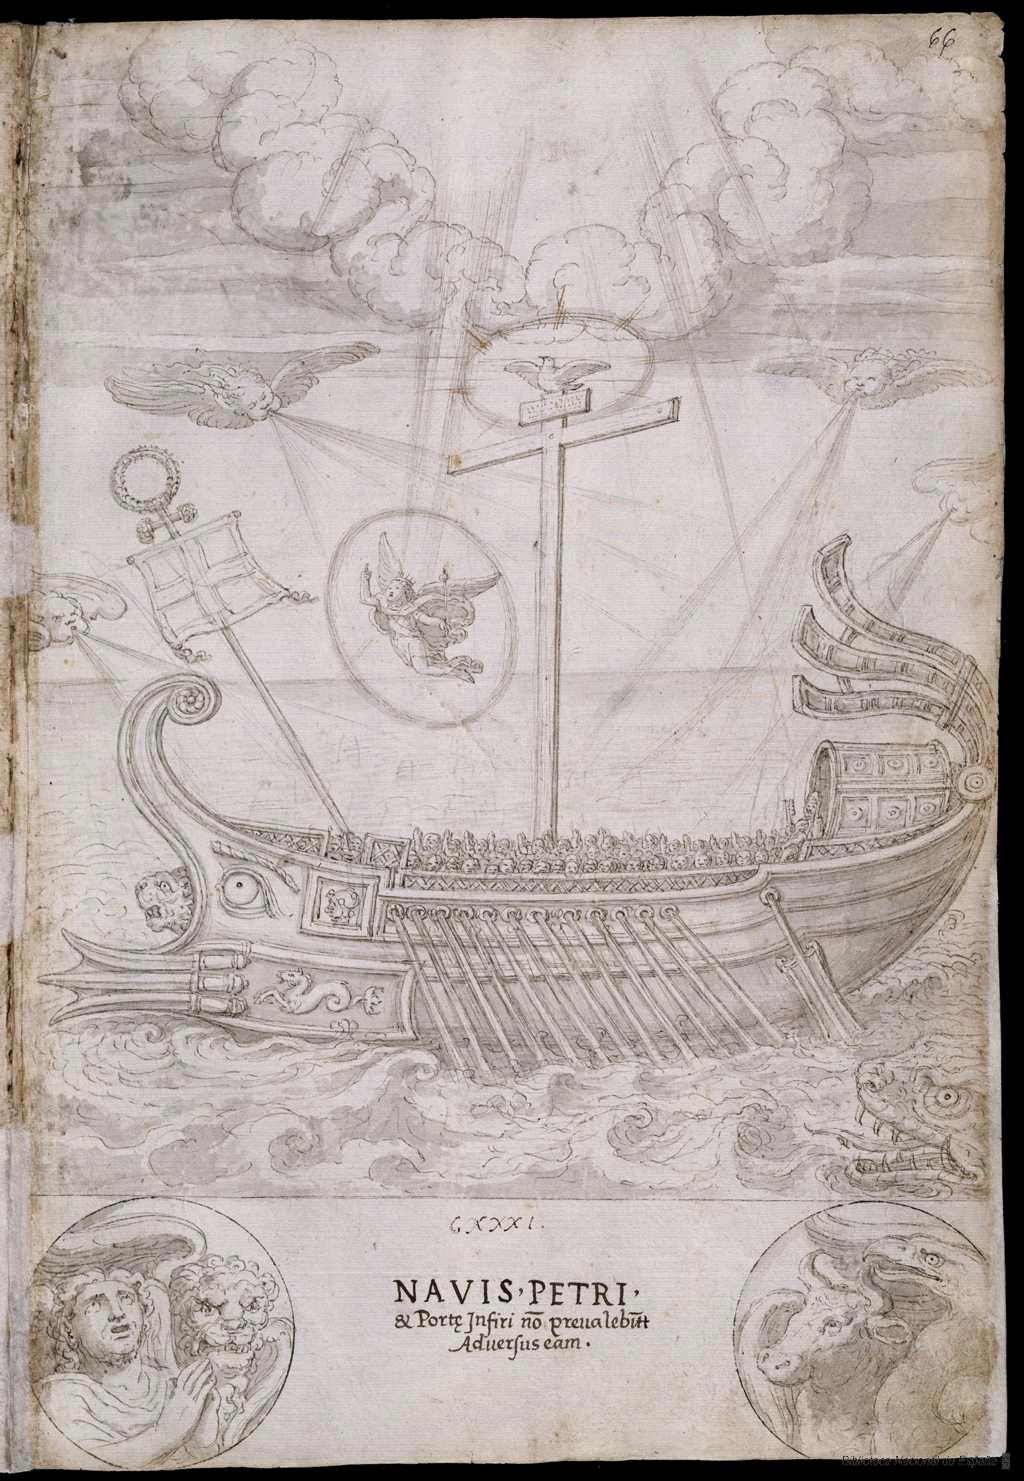 66
CXXXI.
NAVIS, PETRI,
& Portę Infiri nō p̲reualebūt
Aduersus eam.
Biblioteca Nacional de España